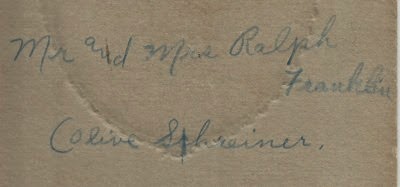 Mr and Mrs Ralph
Franklin
(Olive Schreiner.